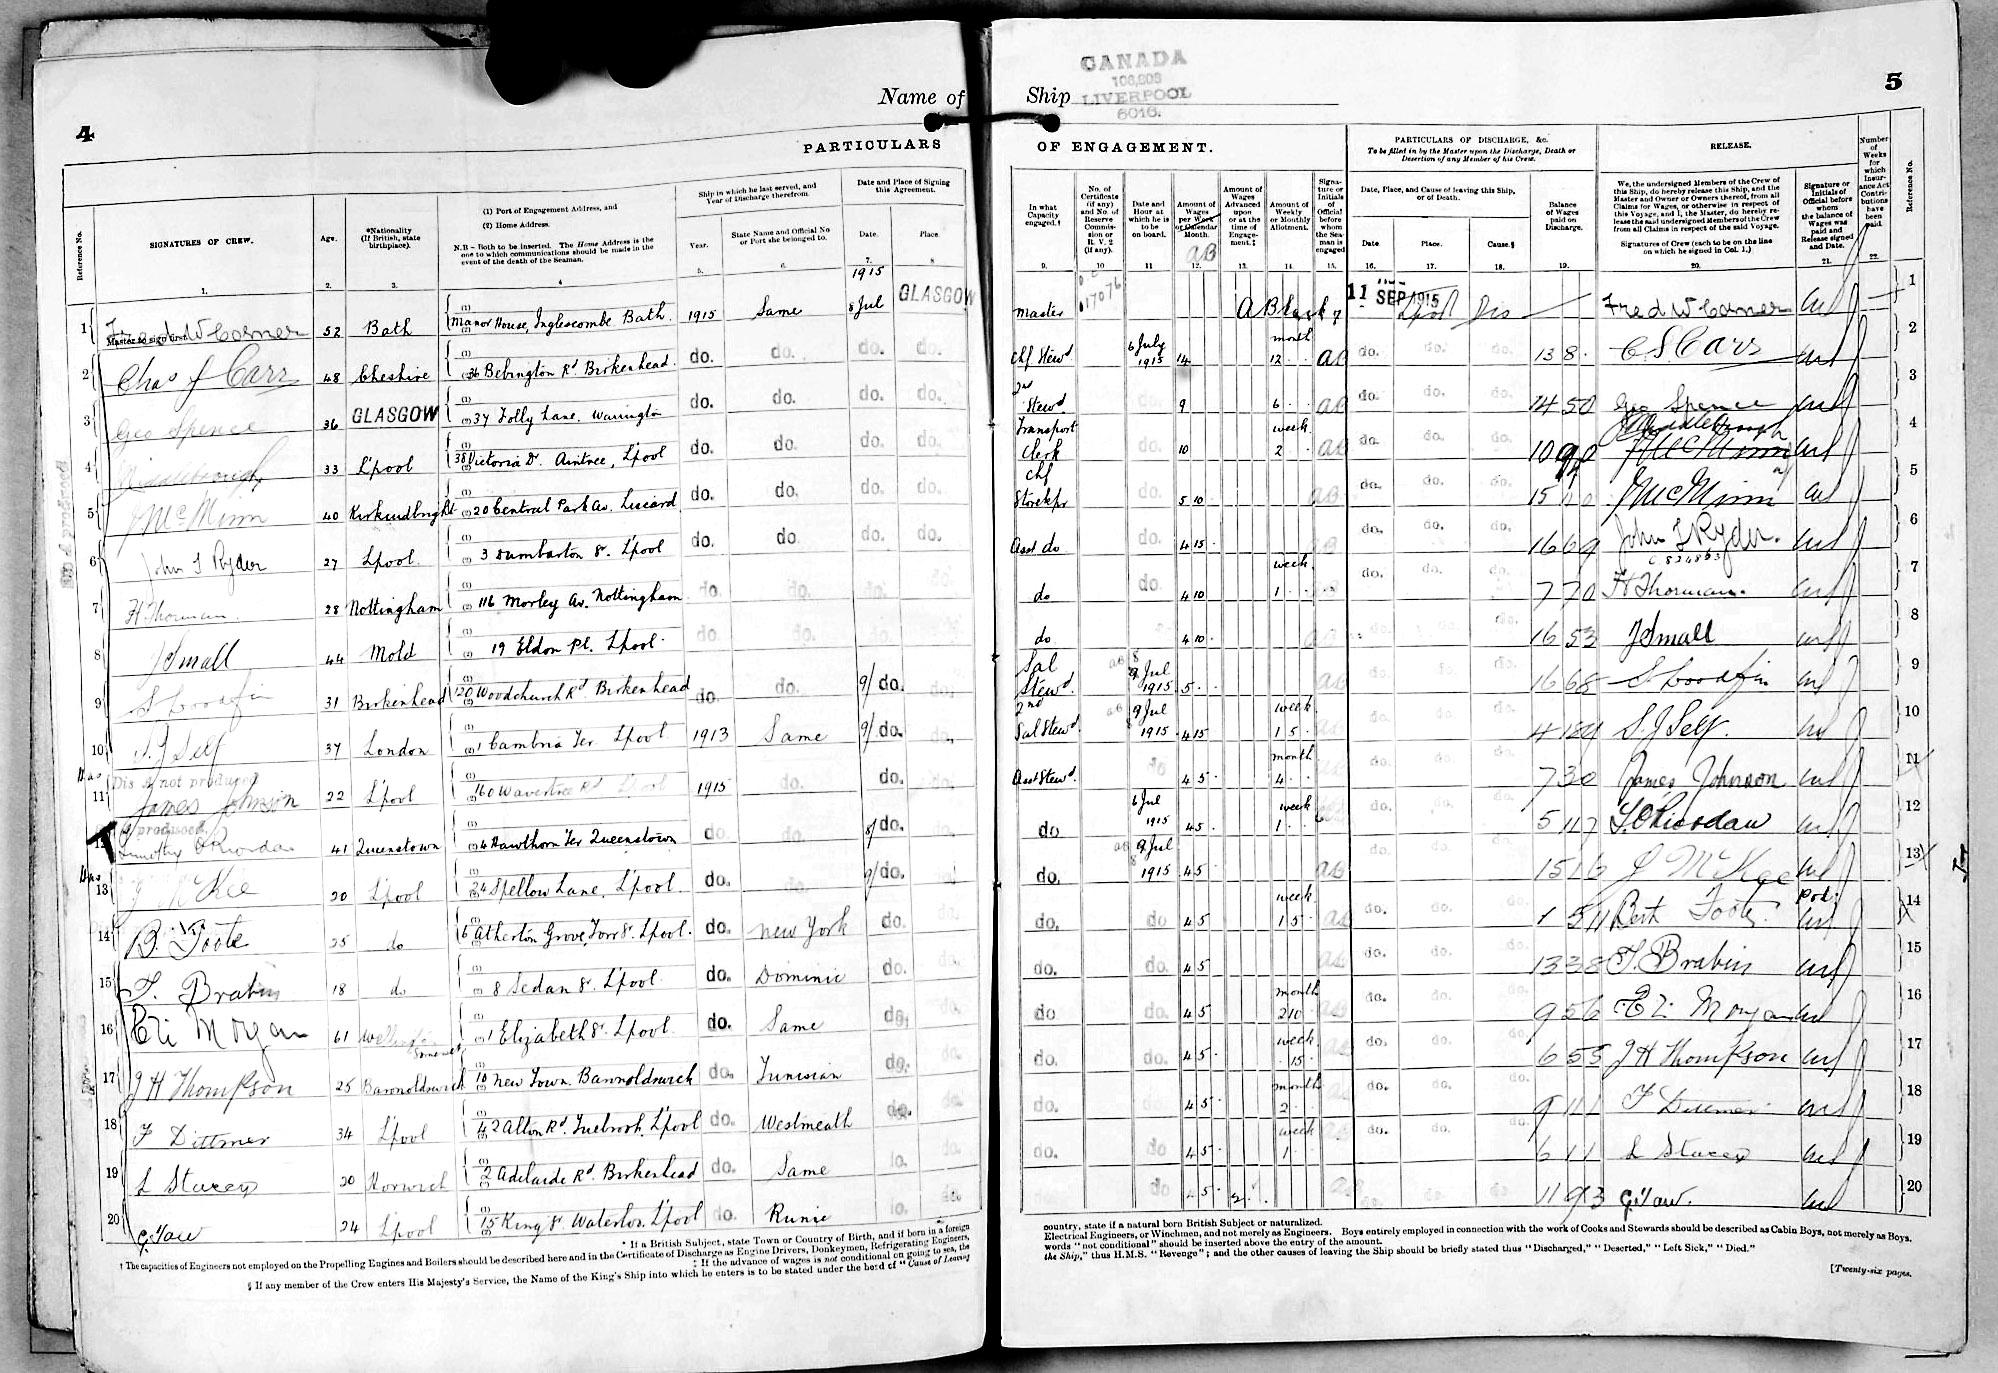 4
Name of
PARTICULARS
Reference No.
SIGNATURES OF CREW.
Age.
*Nationality (If British, state birthplace).
(1) Port of Engagement Address, and
(2) Home Address.
N.B – Both to be inserted. The Home Address is the one to which communications should be made in the event of the death of the Seaman.
Ship in which he last served, and Year of Discharge therefrom.
Year.
State Name and Official No or Port she belonged to.
Date and Place of Signing this Agreement.
Date.
Place.
1. 2. 3. 4 5. 6. 7. 8
1915
1 Fred W Corner 52 Bath Manor House, Inglescombe Bath. 1915 Same 8 Jul GLASGOW
Master to sign first.
2 Chas J Carr 48 Cheshire 36 Bebington Rd. Birkenhead. do. do. do. do.
3 Geo Spence 36 GLASGOW 37 Folly Lane. Warrington do. do. do. do.
4 Middlebrough 33 L'pool 38 Victoria Dr. Aintree, L'pool do. do. do. do.
5 J McMinn 40 Kirkcudbright 20 Central Park Av. Liscard do. do. do. do.
6 John T Ryder 27 Lpool. 3 Dumbarton St. L'pool do. do. do. do.
7 H. Thorman. 28 Nottingham 116 Morley Av. Nottingham do. do. do. do.
8 J Small 44 Mold 19 Eldon Pl. L'pool. do. do. do. do.
9 S Woodfin 31 Birkenhead 120 Woodchurch Rd Birkenhead do. do. 9/ do. do.
10 S. J Self 37 London 1 Cambria Ter L'pool 1913 Same 9/ do. do.
Dis A not produced
11 James Johnson 22 L'pool 160 Wavertree Rd L'pool 1915 do. do.
produced.
12 Timothy O'Riordan 41 Queenstown 4 Hawthorn Ter Queenstown do. do. 8/ do. do.
13 J McKee 20 L'pool 24 Spellow Lane. L'pool. do. do. 9/ do. do.
14 B. Foote 25 do 6 Atherton Grove, Torr St. L'pool. do. New York do. do.
15 T. Brabin 18 do 8 Sedan St. L'pool. do. Dominic do. do.
16 Eli Morgan 61 Somerset 1 Elizabeth St. L'pool. do. Same do. do.
17 J H Thompson 25 Barnoldswick 10 New Town. Barnoldswick do. Tunisian do. do.
18 F Dittmer 34 L'pool 42 Alton Rd. Tuebrook. L'pool do. Westmeath do. do.
19 L Stacey 20 Horwich 2 Adelaide Rd. Birkenhead do. Same do. do.
20 G. Yaw 24 L'pool 15 King St. Waterloo. L'pool do. Runic do. do.
* If a British Subject, state Town or Country of Birth, and if born in a foreign
† The capacities of Engineers not employed on the Propelling Engines and Boilers should be described here and in the Certificate of Discharge as Engine Drivers, Donkeymen, Refrigerating Engineers,
‡ If the advance of wages is not conditional on going to sea, the
§ If any member of the Crew enters His Majesty's Service, the Name of the King's Ship into which he enters is to be stated under the head of "Cause of Leaving
Ship
CANADA
LIVERPOOL
6016.
5
OF ENGAGEMENT.
PARTICULARS OF DISCHARGE, &c.
To be filled in by the Master upon the Discharge, Death or Desertion of any Member of his Crew.
RELEASE.
Number of Weeks for which Insurance Act Contributions have been paid.
Reference No.
In what Capacity engaged.†
No. of Certificate (if any) and No. of Reserve Commission or R.V. 2 (if any).
Date and Hour at which he is to be on board.
Amount of Wages per Week or Calendar Month.
Amount of Wages Advanced upon or at the time of Engagement.‡
Amount of Weekly or Monthly Allotment.
Signature or Initials of Official before whom the Seaman is engaged
Date, Place, and Cause of leaving this Ship, or of Death.
Date Place. Cause.§
Balance of Wages paid on Discharge.
We, the undersigned Members of the Crew of this Ship, do hereby release this Ship, and the Master and Owner or Owners thereof, from all Claims for Wages, or otherwise in respect of this Voyage, and I, the Master, do hereby release the said undersigned Members of the Crew from all Claims in respect of the said Voyage.
Signatures of Crew (each to be on the line on which he signed in Col. 1.)
Signature or Initials of Official before whom the balance of Wages was paid and Release signed and Date.
9. 10 11 12 13. 14. 15. 16. 17. 18. 19. 20. 21. 22.
AB
Master 017076 A B Clark 11 SEP 1915 Lpool Dis Fred W Corner 1
Chf Stewd 6 July 1915 14 month 12 AB do. do. do. 13 8 C S Carr 2
2nd Stewd. do 9 6 AB do. do. do. 14 5 0 Geo Spence 3
Transport Clerk do. 10 week 2 AB do. do. do. Middlebrough 4
Chf Storekpr do. 5 10 AB do. do. do. J McMinn 5
Asst do do. 4 15 do. do. do. 16 6 9 John T Ryder. 6
do do. 4 10 week 1 do. do. do. 7 7 0 H Thorman. 7
do 4 10 do. do. 16 5 3 J Small 8
Sal Stewd. 9 Jul 1915 5 AB do. do. do. 16 6 8 S Woodfin 9
2nd Sal Stewd. 9 Jul 1915 4 15 week 1 5 do. do. do. S. J Self. 10
Asst Stewd. do 4 5 month 4 do. do. do. 7 3 0 James Johnson 11
do 6 Jul 1915 4 5 week 1 do. do. do. 5 11 7 T. O'Riordan 12
do. 9 Jul 1915 4 5 AB do. do. do. 15 1 6 J McKee 13
do. do 4 5 week 1 5 AB do. do. do. Bert Foote. 14
do. do. 4 5 do. do. do. 13 3 8 T. Brabin 15
do do. 4 5 month 2 10 do. do. do. 9 5 6 Eli Morgan 16
do. do. 4 5 week 15 do. do. do. 6 5 5 J H Thompson 17
do. do. 4 5 month 2 do. do. do. 9 11 1 F Dittmer 18
do. do 4 5 week 1 do. do. do. 6 1 1 L Stacey 19
do. do 4 5 2 do. do. do. 11 9 3 G. Yaw. 20
country, state if a natural born British Subject or naturalized.
Electrical Engineers, or Winchmen, and not merely as Engineers. Boys entirely employed in connection with the work of Cooks and Stewards should be described as Cabin Boys, not merely as Boys.
words "not conditional" should be inserted above the entry of the amount.
the Ship," thus H.M.S. "Revenge"; and the other causes of leaving the Ship should be briefly stated thus "Discharged," "Deserted," "Left Sick," "Died."
[Twenty-six pages.